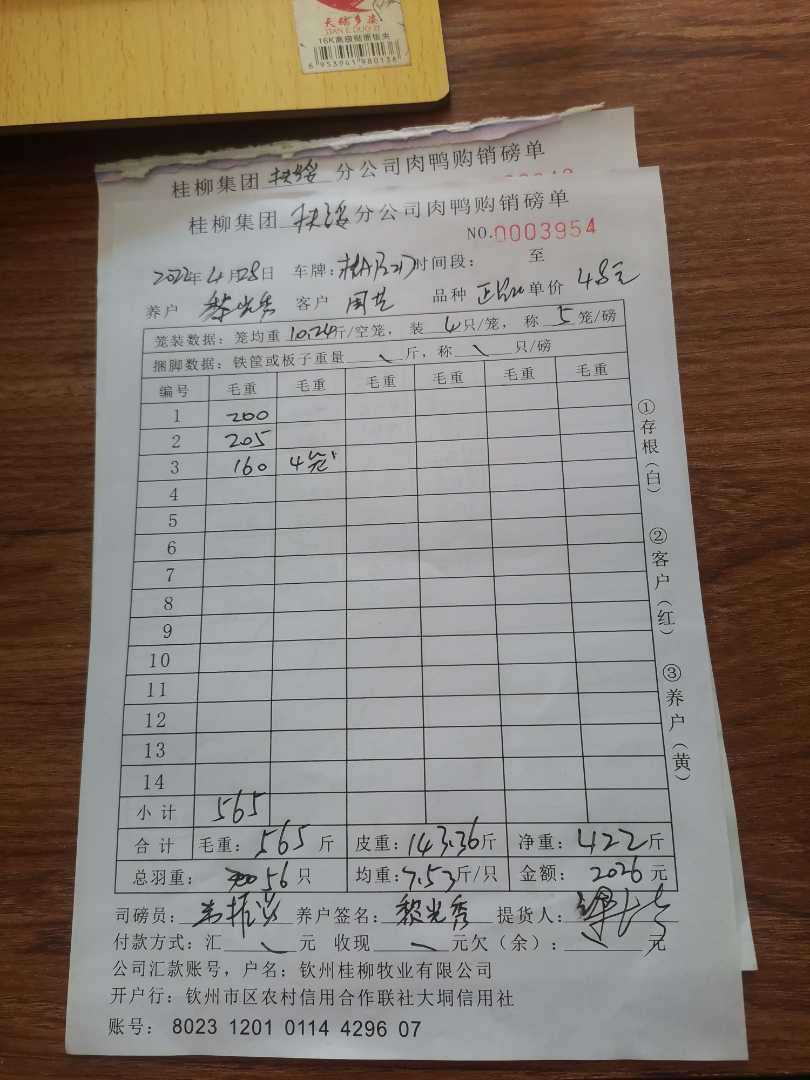 天骄多姿
TIAN E DUO ZI
16K高级贴面板夹
6 953941 980136
桂柳集团 扶绥 分公司肉鸭购销磅单
桂柳集团 扶绥 分公司肉鸭购销磅单
NO.0003954
2022年4月28日 车牌: 时间段: 至
养户 黎光秀 客户 品种 单价 4.8元
笼装数据: 笼均重 10.24斤/空笼, 装 4只/笼, 称 5笼/磅
捆脚数据: 铁筐或板子重量 \ 斤, 称 \ 只/磅
编号 毛重 毛重 毛重 毛重 毛重 毛重
1 200
2 205
3 160 4笼
4
5
6
7
8
9
10
11
12
13
14
小计 565
合计 毛重: 565斤 皮重: 143.36斤 净重: 422斤
总羽重: 56只 均重: 7.53斤/只 金额: 2026元
司磅员: 养户签名: 黎光秀 提货人:
付款方式: 汇 \ 元 收现 \ 元欠(余): 元
公司汇款账号, 户名: 钦州桂柳牧业有限公司
开户行: 钦州市区农村信用合作联社大垌信用社
账号: 8023 1201 0114 4296 07
①存根(白)
②客户(红)
③养户(黄)